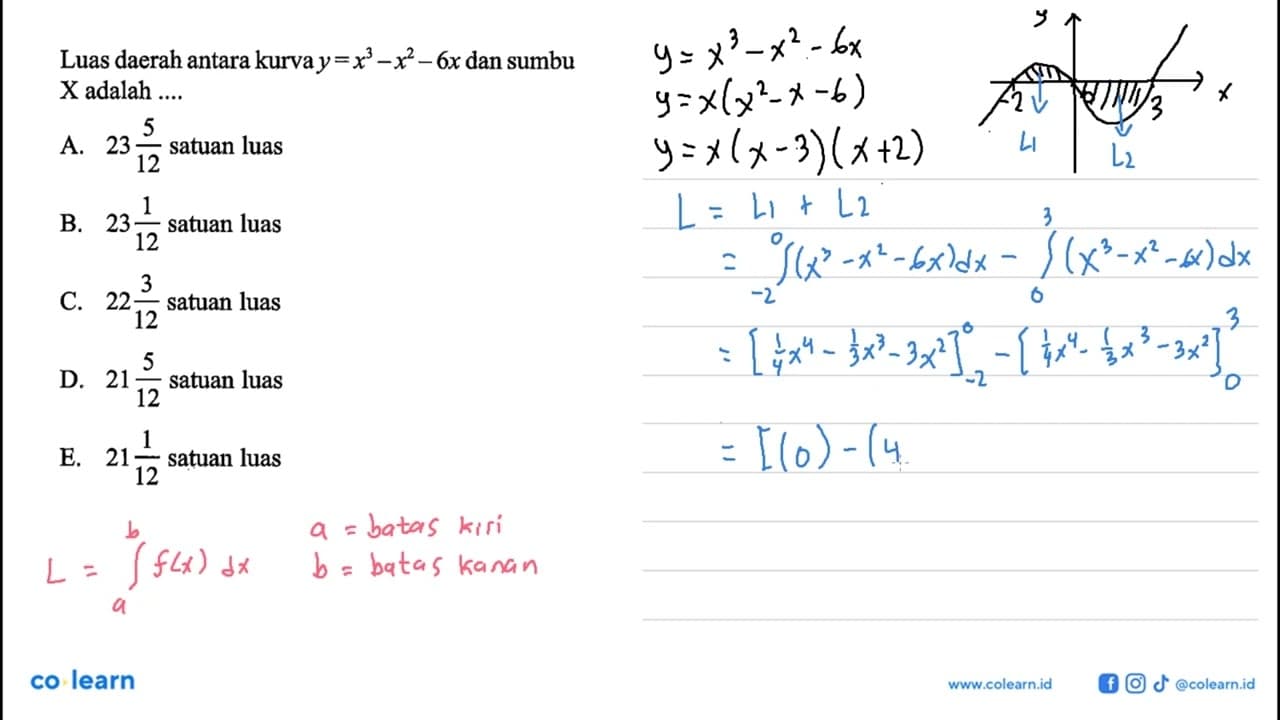 Luas daerah antara kurva y = x³ – x² – 6x dan sumbu
X adalah ....
A. 23 5/12 satuan luas
B. 23 1/12 satuan luas
C. 22 3/12 satuan luas
D. 21 5/12 satuan luas
E. 21 1/12 satuan luas
L = ∫_a^b f(x) dx
a = batas kiri
b = batas kanan
y = x³ - x² - 6x
y = x(x² - x - 6)
y = x(x - 3)(x + 2)
y
x
-2
0
3
L1
L2
L = L1 + L2
= ∫_-2^0 (x³ - x² - 6x)dx - ∫_0^3 (x³ - x² - 6x)dx
= [1/4 x⁴ - 1/3 x³ - 3x²]_-2^0 - [1/4 x⁴ - 1/3 x³ - 3x²]_0^3
= [(0) - (4
co learn
www.colearn.id
@colearn.id